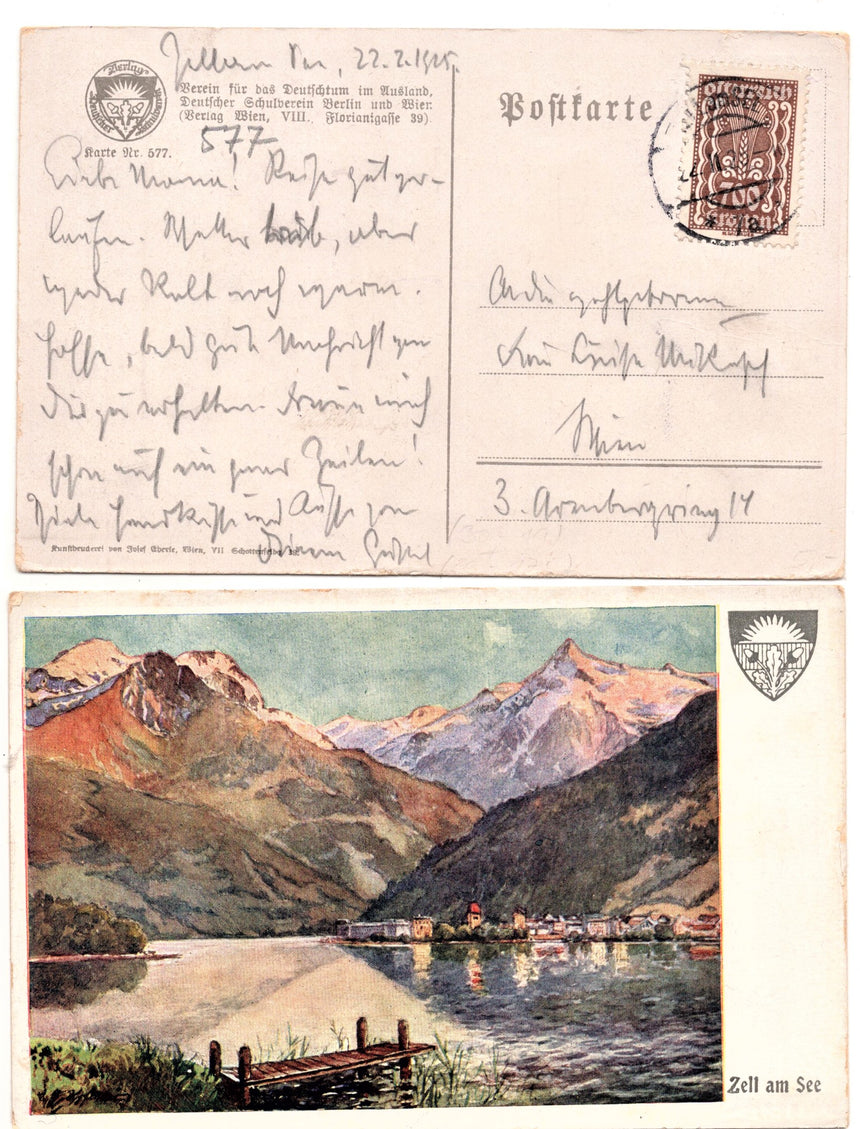 Zell am See, 22.2.1925.
Verlag
Deutscher Schulverein
Verein für das Deutschtum im Ausland,
Deutscher Schulverein Berlin und Wien
(Verlag Wien, VIII. Florianigasse 39).
577
Karte Nr. 577.
Postkarte
700
Liebe Mama! Reise gut ver-
laufen. Wetter trüb, aber
weder kalt noch warm.
Hoffe, bald gute Nachricht von
Dir zu erhalten. Freue mich
schon auf ein paar Zeilen!
Viele Handküsse und Küsse von
Deinem
Kunstdruckerei von Josef Eberle, Wien, VII Schottenfeldg.
Frau Luise
Wien
3. Arenbergring 14
Zell am See